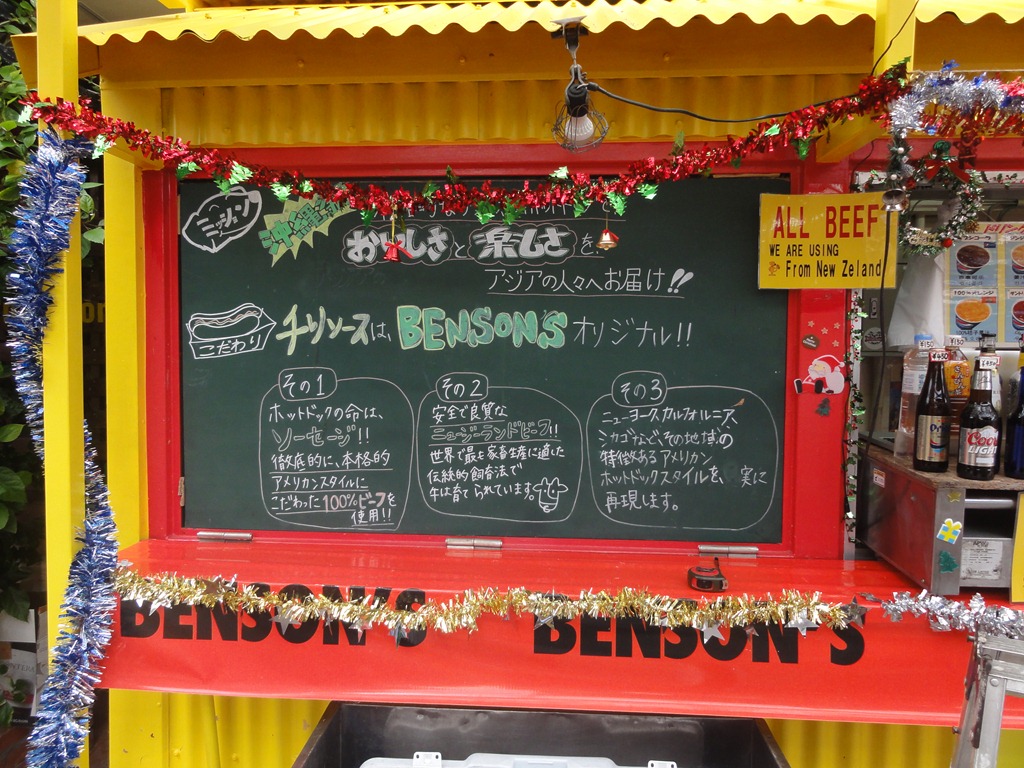 ミッション
おいしさと楽しさを、
アジアの人々へお届け!!
こだわり
チリソースは、BENSON'Sオリジナル!!
その1
ホットドックの命は、
ソーセージ!!
徹底的に、本格的
アメリカンスタイルに
こだわった100%ビーフを
使用!!
その2
安全で良質な
ニュージーランドビーフ!!
世界で最も家畜生産に適した
伝統的飼育法で
牛は育てられています。
その3
ニューヨーク、カルフォルニア、
シカゴなど、その地域の
特徴あるアメリカン
ホットドックスタイルを、実に
再現します。
ALL BEEF
WE ARE USING
From New Zeland
¥150
¥450
¥150
¥450
Coors
LIGHT
BENSON'S
BENSON'S